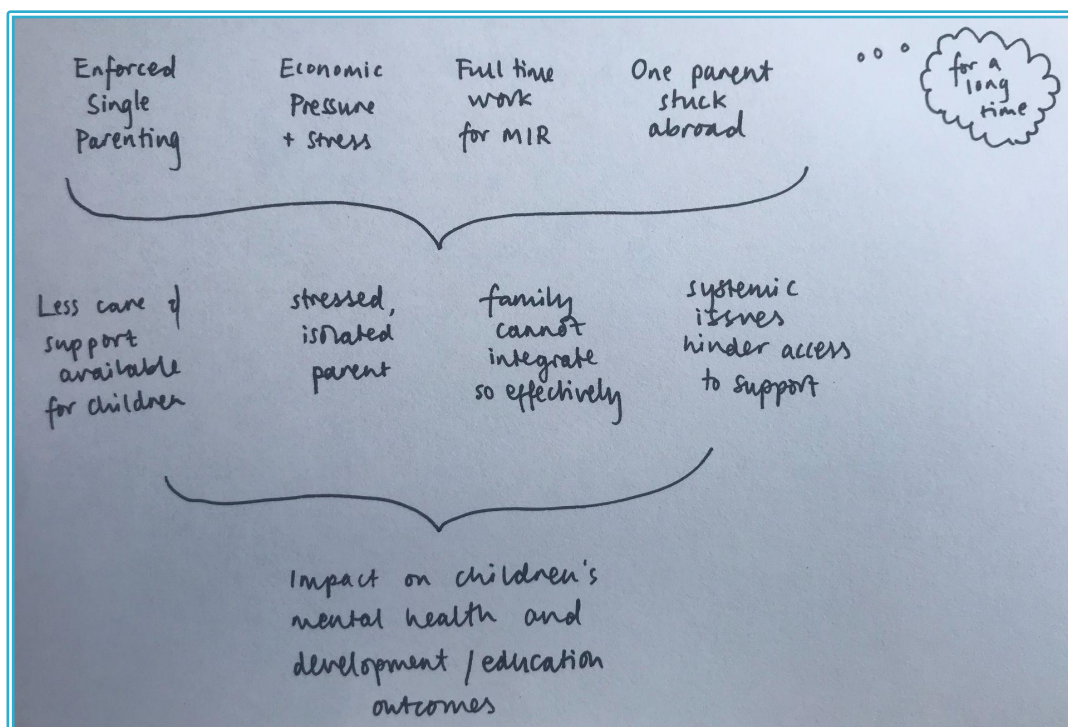 Enforced
Single
Parenting
Economic
Pressure
+ stress
Full time
work
for MIR
One parent
stuck
abroad
for a
long
time
Less care &
support
available
for children
stressed,
isolated
parent
family
cannot
integrate
so effectively
systemic
issues
hinder access
to support
Impact on children's
mental health and
development / education
outcomes